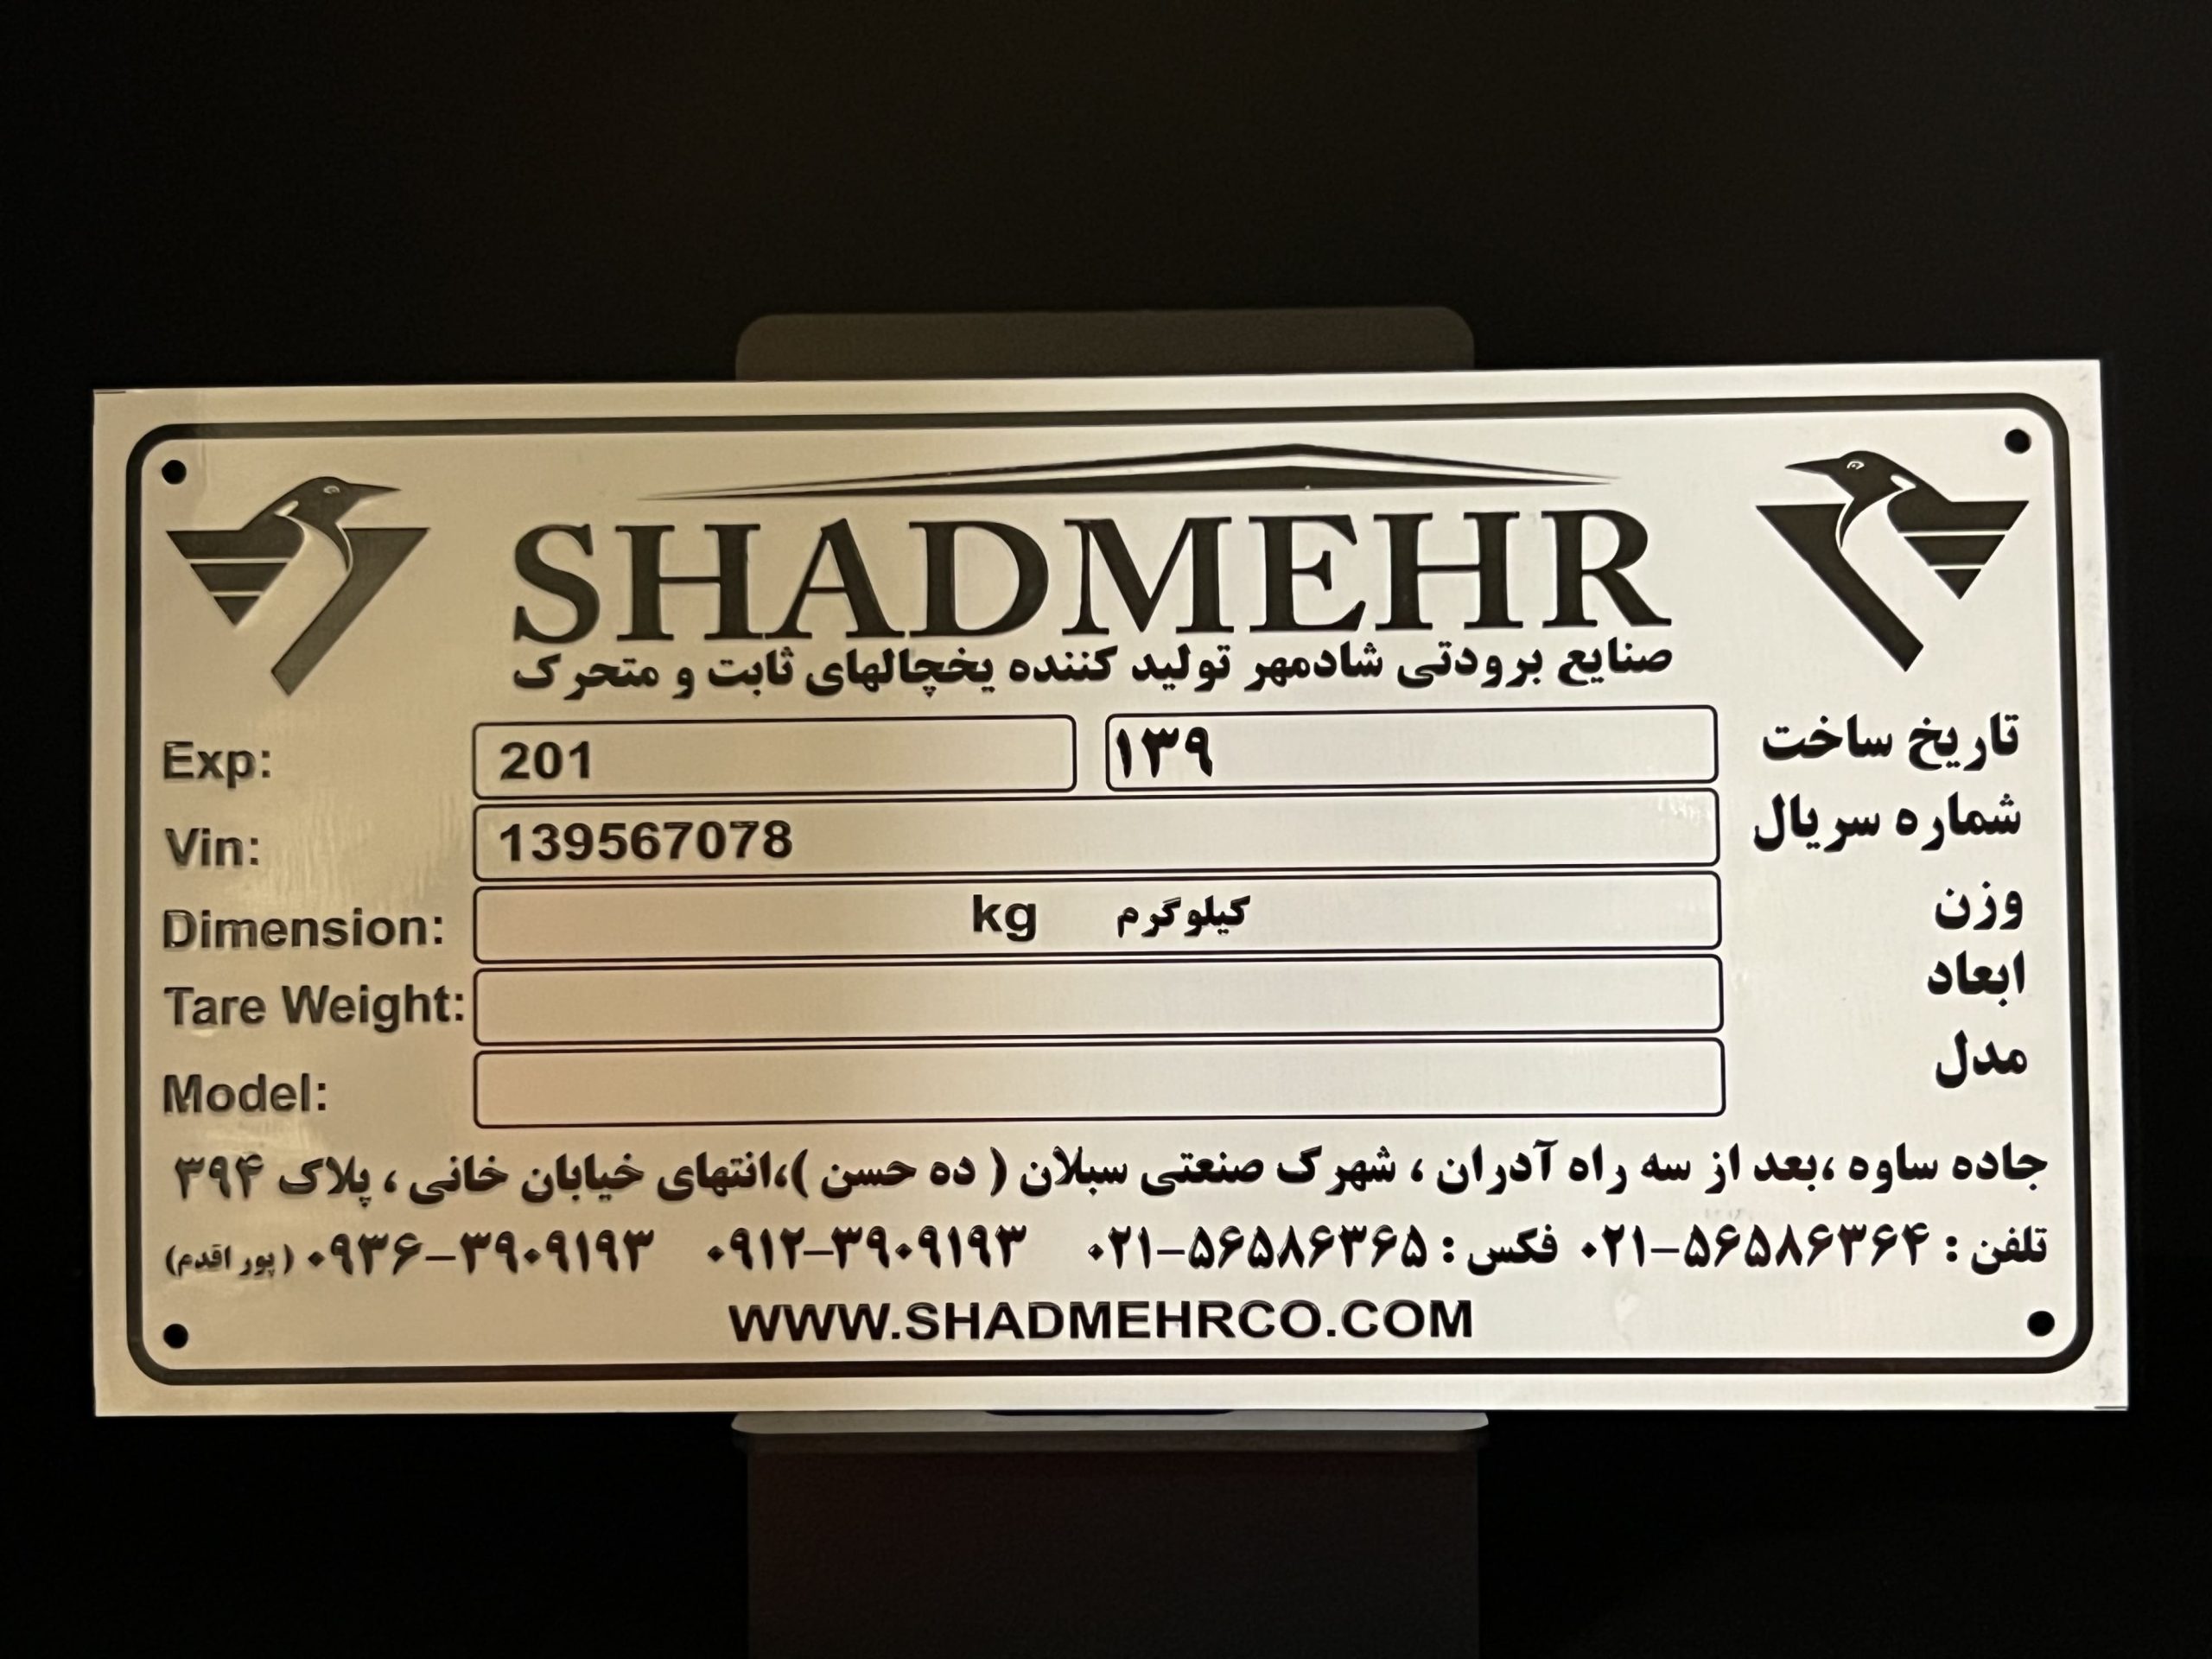 SHADMEHR
صنایع برودتی شادمهر تولید کننده یخچالهای ثابت و متحرک
Exp: 201 ۱۳۹ تاریخ ساخت
Vin: 139567078 شماره سریال
Dimension: kg کیلوگرم وزن
Tare Weight: ابعاد
Model: مدل
جاده ساوه ،بعد از سه راه آدران ، شهرک صنعتی سبلان ( ده حسن )،انتهای خیابان خانی ، پلاک ۳۹۴
تلفن : ۵۶۵۸۶۳۶۴-۰۲۱ فکس : ۵۶۵۸۶۳۶۵-۰۲۱ ۰۹۱۲-۳۹۰۹۱۹۳ ۰۹۳۶-۳۹۰۹۱۹۳ (پور اقدم)
WWW.SHADMEHRCO.COM